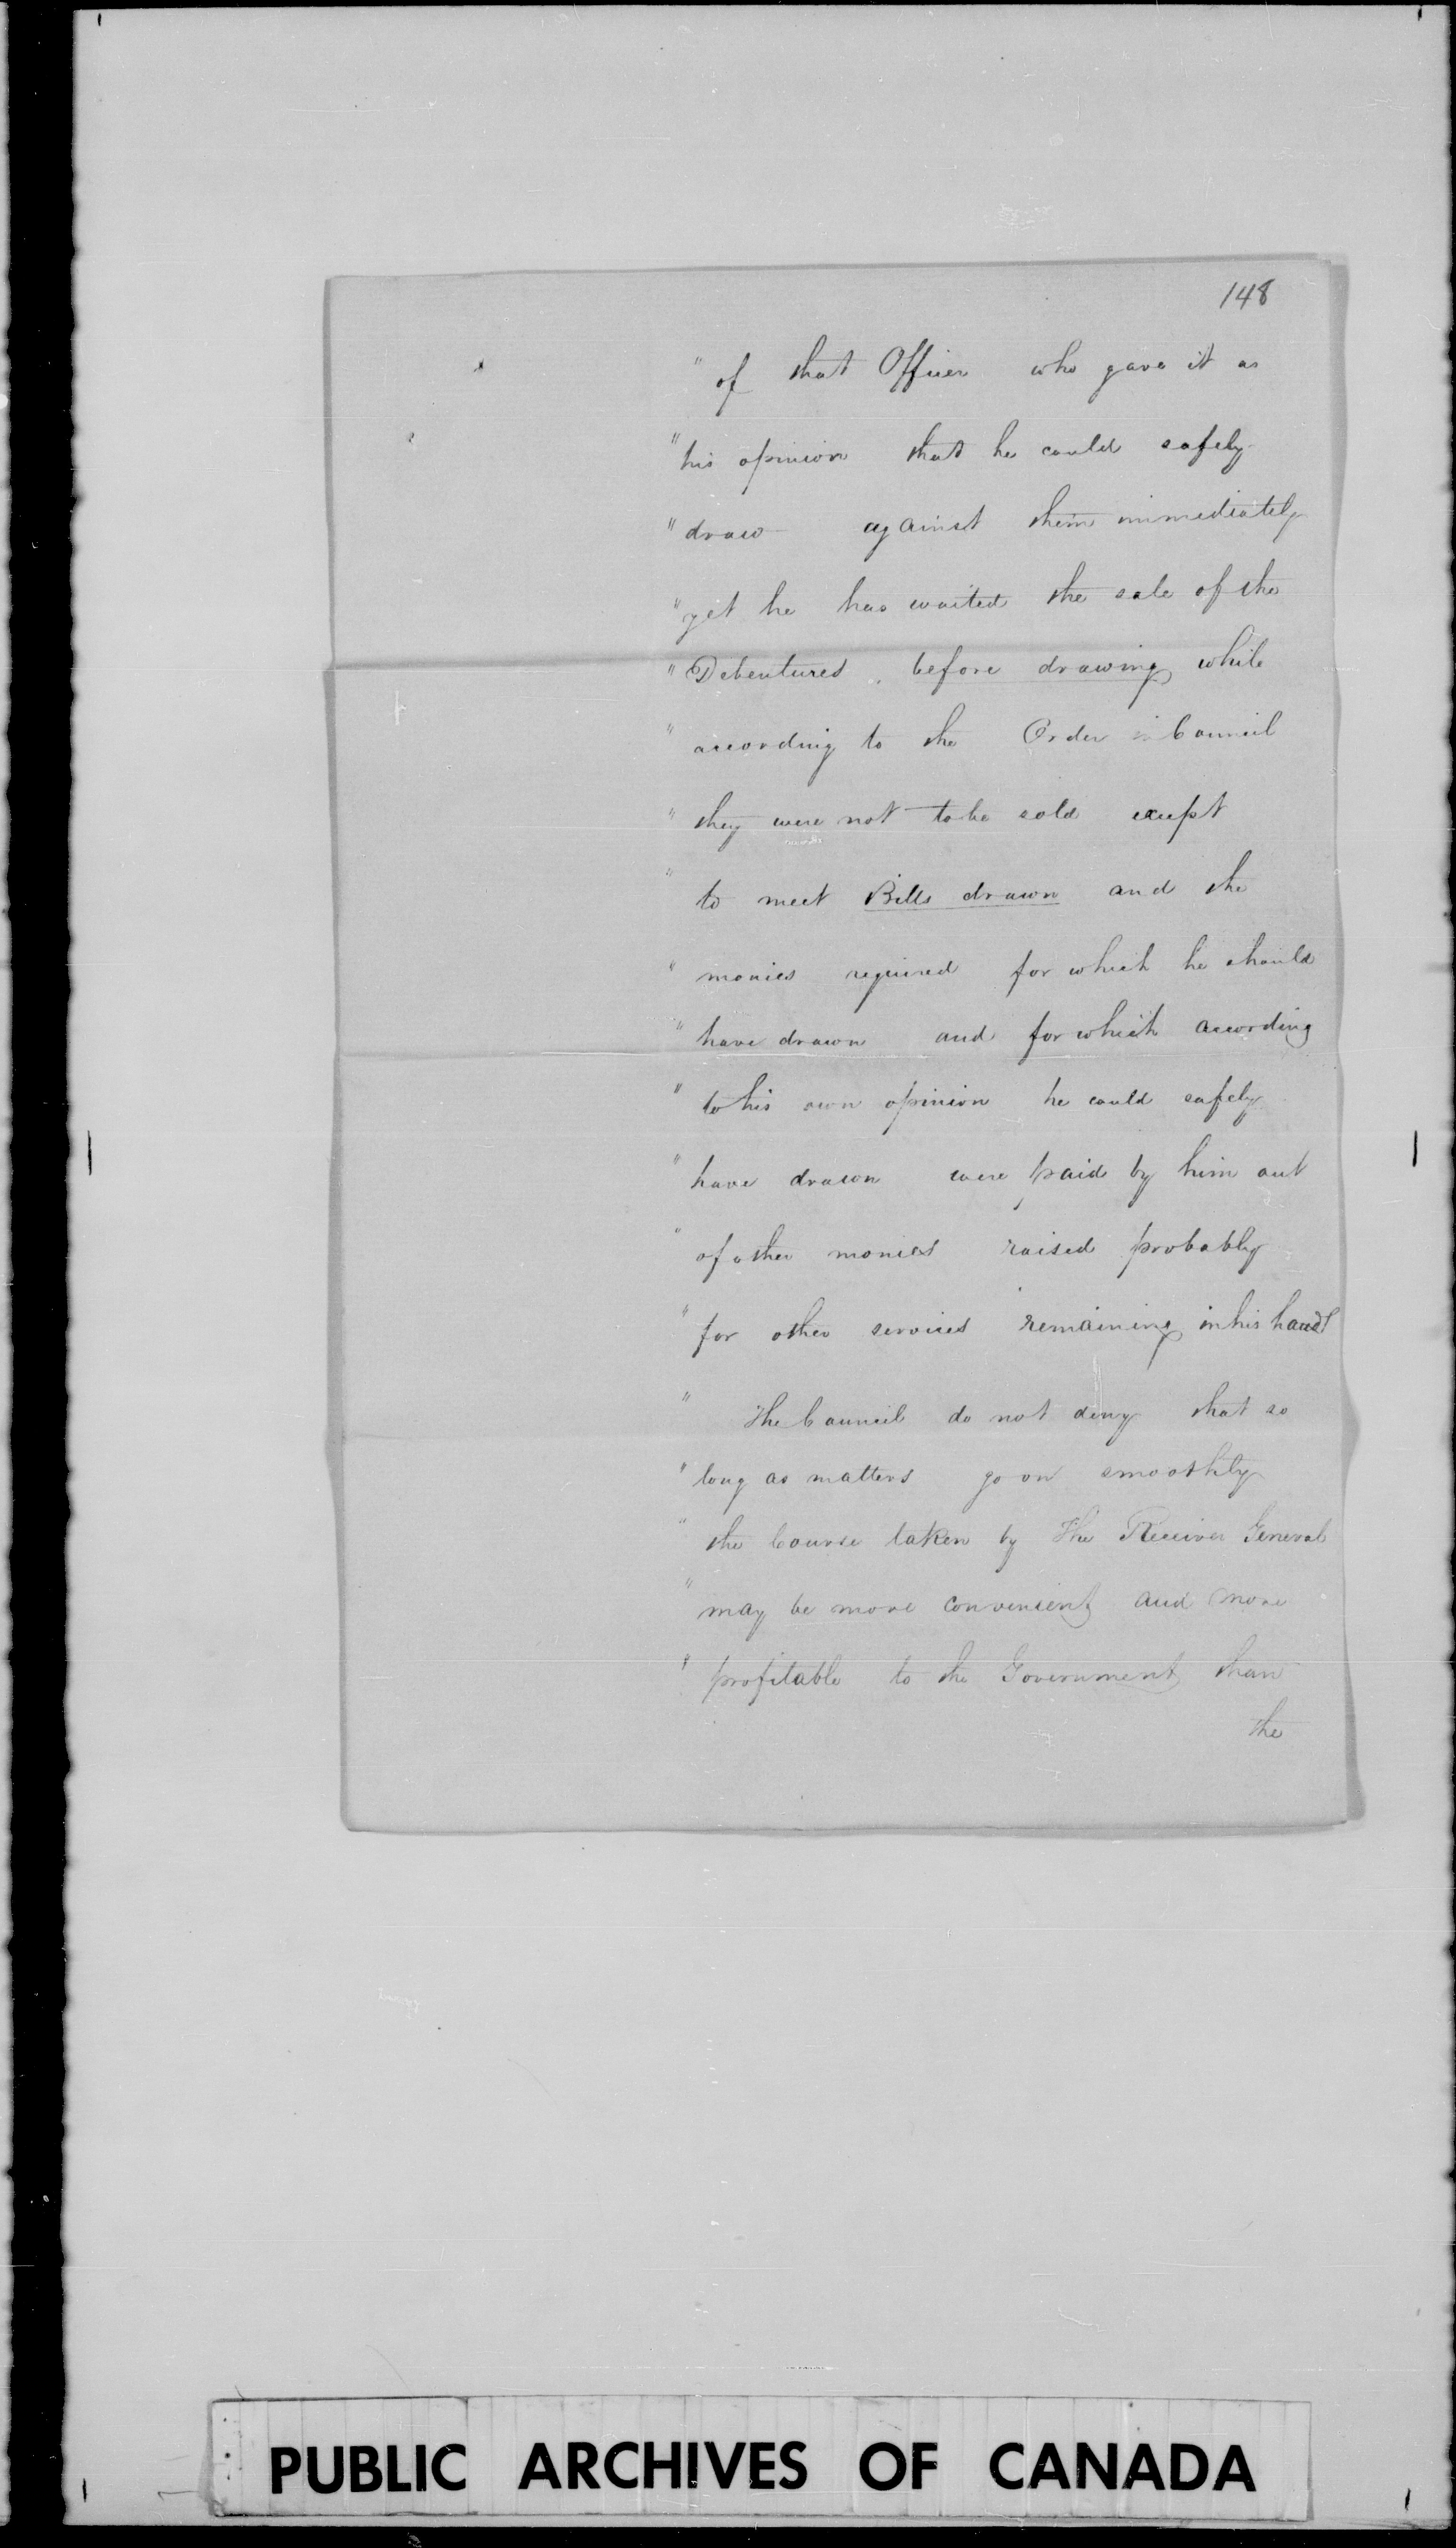 148
" of that Officer who gave it as
" his opinion that he could safely
" draw against them immediately
" yet he has waited the sale of the
" Debentures, before drawing while
" according to the Order in Council
" they were not to be sold except
" to meet Bills drawn and the
" monies required for which he should
" have drawn and for which according
" to his own opinion he could safely
" have drawn were paid by him out
" of other monies raised probably
" for other services remaining in his hands
" The Council do not deny that so
" long as matters go on smoothly
" the Course taken by the Receiver General
" may be more convenient and more
" profitable to the Government than
the
PUBLIC ARCHIVES OF CANADA